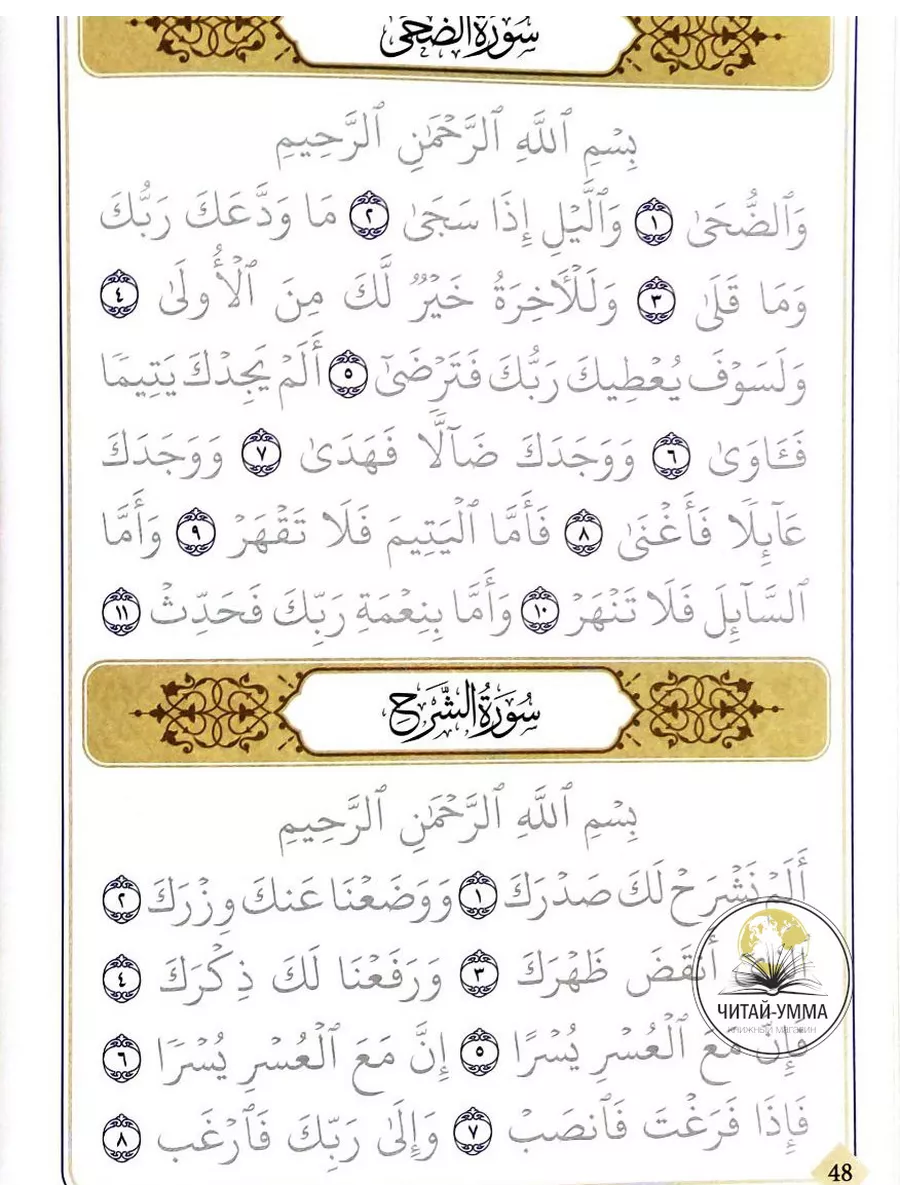 سُورَةُ الضُّحَىٰ
بِسْمِ ٱللَّهِ ٱلرَّحْمَٰنِ ٱلرَّحِيمِ
وَٱلضُّحَىٰ ١ وَٱلَّيْلِ إِذَا سَجَىٰ ٢ مَا وَدَّعَكَ رَبُّكَ
وَمَا قَلَىٰ ٣ وَلَلْأَخِرَةُ خَيْرٌ لَّكَ مِنَ ٱلْأُولَىٰ ٤
وَلَسَوْفَ يُعْطِيكَ رَبُّكَ فَتَرْضَىٰٓ ٥ أَلَمْ يَجِدْكَ يَتِيمًا
فَـَٔاوَىٰ ٦ وَوَجَدَكَ ضَآلًّا فَهَدَىٰ ٧ وَوَجَدَكَ
عَآئِلًا فَأَغْنَىٰ ٨ فَأَمَّا ٱلْيَتِيمَ فَلَا تَقْهَرْ ٩ وَأَمَّا
ٱلسَّآئِلَ فَلَا تَنْهَرْ ١٠ وَأَمَّا بِنِعْمَةِ رَبِّكَ فَحَدِّثْ ١١
سُورَةُ الشَّرْحِ
بِسْمِ ٱللَّهِ ٱلرَّحْمَٰنِ ٱلرَّحِيمِ
أَلَمْ نَشْرَحْ لَكَ صَدْرَكَ ١ وَوَضَعْنَا عَنكَ وِزْرَكَ ٢
أَنقَضَ ظَهْرَكَ ٣ وَرَفَعْنَا لَكَ ذِكْرَكَ ٤
فَإِنَّ مَعَ ٱلْعُسْرِ يُسْرًا ٥ إِنَّ مَعَ ٱلْعُسْرِ يُسْرًا ٦
فَإِذَا فَرَغْتَ فَٱنصَبْ ٧ وَإِلَىٰ رَبِّكَ فَٱرْغَب ٨
ЧИТАЙ-УММА
книжный магазин
48